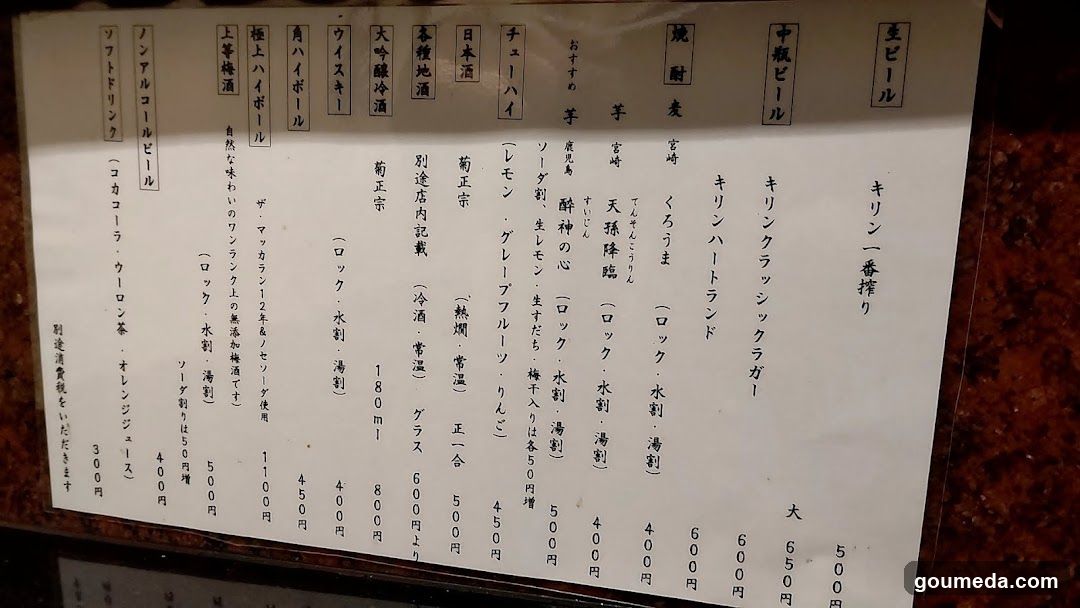 生ビール キリン一番搾り 500円
大 650円
中瓶ビール キリンクラッシックラガー 600円
キリンハートランド 600円
焼酎 麦 宮崎 くろうま (ロック・水割・湯割) 400円
てんそんこうりん
芋 宮崎 天孫降臨 (ロック・水割・湯割) 400円
すいじん
おすすめ 芋 鹿児島 酔神の心 (ロック・水割・湯割) 500円
ソーダ割、生レモン・生すだち・梅干入りは各50円増
チューハイ (レモン・グレープフルーツ・りんご) 450円
日本酒 菊正宗 (熱燗・常温) 正一合 500円
各種地酒 別途店内記載 (冷酒・常温) グラス 600円より
大吟醸冷酒 菊正宗 180ml 800円
ウイスキー (ロック・水割・湯割) 400円
角ハイボール 450円
極上ハイボール ザ・マッカラン12年&ノセソーダ使用 1100円
上等梅酒 自然な味わいのワンランク上の無添加梅酒です)
(ロック・水割・湯割) 500円
ソーダ割りは50円増
ノンアルコールビール 400円
ソフトドリンク (コカコーラ・ウーロン茶・オレンジジュース) 300円
別途消費税をいただきます
goumeda.com